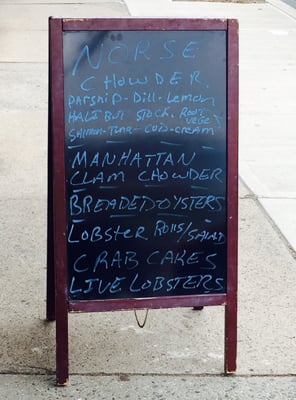 NÖRSE
CHOWDER
PARSNIP-DILL-LEMON
HALIBUT STOCK. ROOT
VEGE'S
SALMON-TUNA-COD-CREAM
MANHATTAN
CLAM CHOWDER
BREADED OYSTERS
LOBSTER ROLLS/SALAD
CRAB CAKES
LIVE LOBSTERS